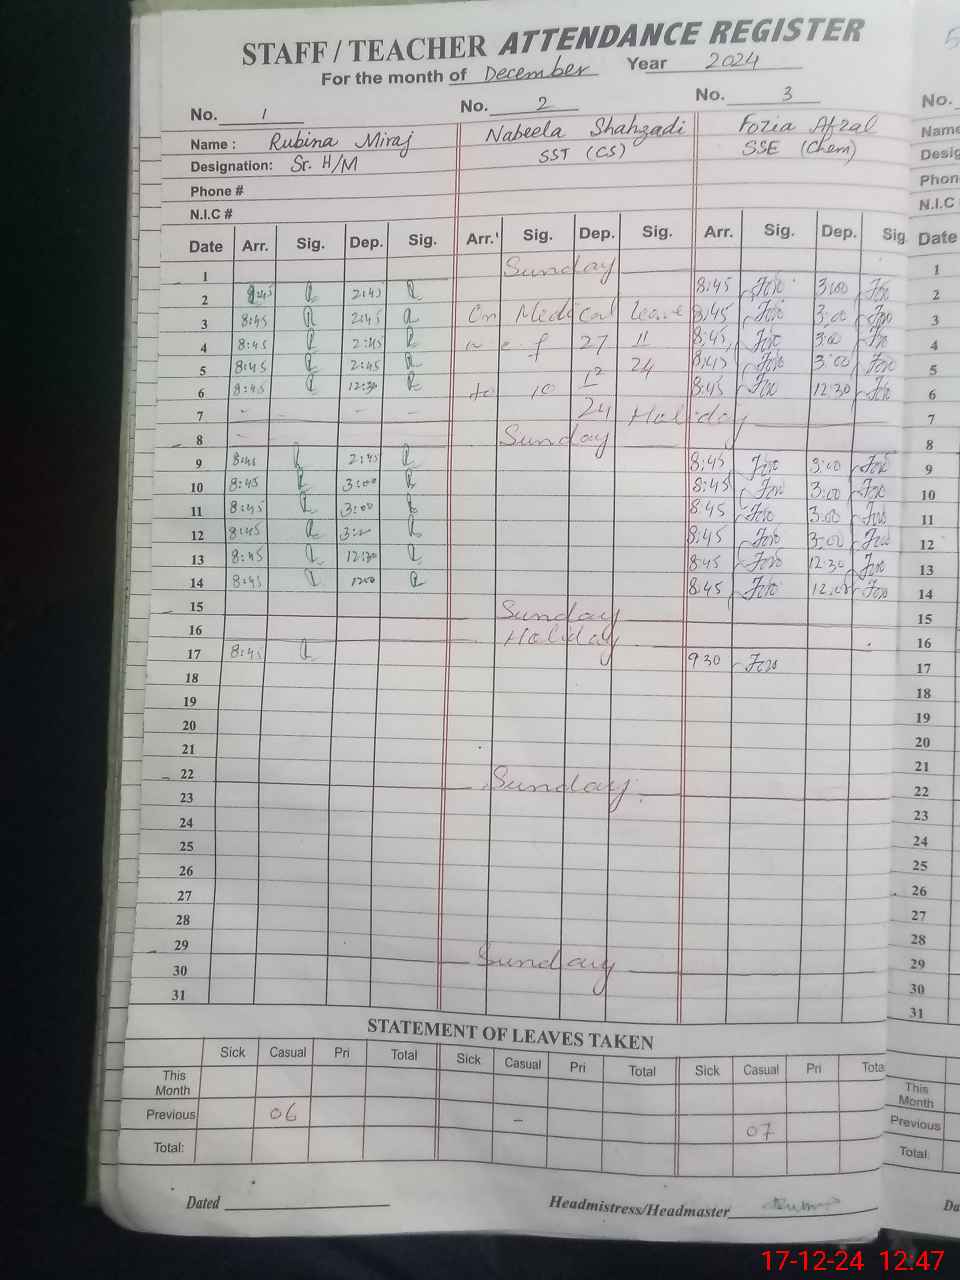 STAFF / TEACHER ATTENDANCE REGISTER
For the month of December Year 2024
No. 1 No. 2 No. 3 No.
Name : Rubina Miraj Nabeela Shahzadi Fozia Afzal Name
Designation: Sr. H/M SST (CS) SSE (Chem) Desig
Phone # Phon
N.I.C # N.I.C
Date Arr. Sig. Dep. Sig. Arr. Sig. Dep. Sig. Arr. Sig. Dep. Sig Date
1 Sunday 1
2 8:45 2:45 8:45 3:00 2
3 8:45 2:45 On Medical leave 8:45 3:00 3
4 8:45 2:45 w.e.f 27 11 8:45 3:00 4
5 8:45 2:45 24 8:45 3:00 5
6 8:45 12:30 to 10 12 8:45 12:30 6
7 - - - - 24 Holiday 7
8 - Sunday 8
9 8:45 2:45 8:45 3:00 9
10 8:45 3:00 8:45 3:00 10
11 8:45 3:00 8:45 3:00 11
12 8:45 8:45 3:00 12
13 8:45 12:30 8:45 12:30 13
14 8:45 1200 8:45 12:00 14
15 Sunday 15
16 Holiday 16
17 8:45 930 17
18 18
19 19
20 20
21 21
22 Sunday 22
23 23
24 24
25 25
26 26
27 27
28 28
29 Sunday 29
30 30
31 31
STATEMENT OF LEAVES TAKEN
Sick Casual Pri Total Sick Casual Pri Total Sick Casual Pri Tota
This Month This Month
Previous 06 - 07 Previous
Total: Total
Dated Headmistress/Headmaster Da
17-12-24 12:47